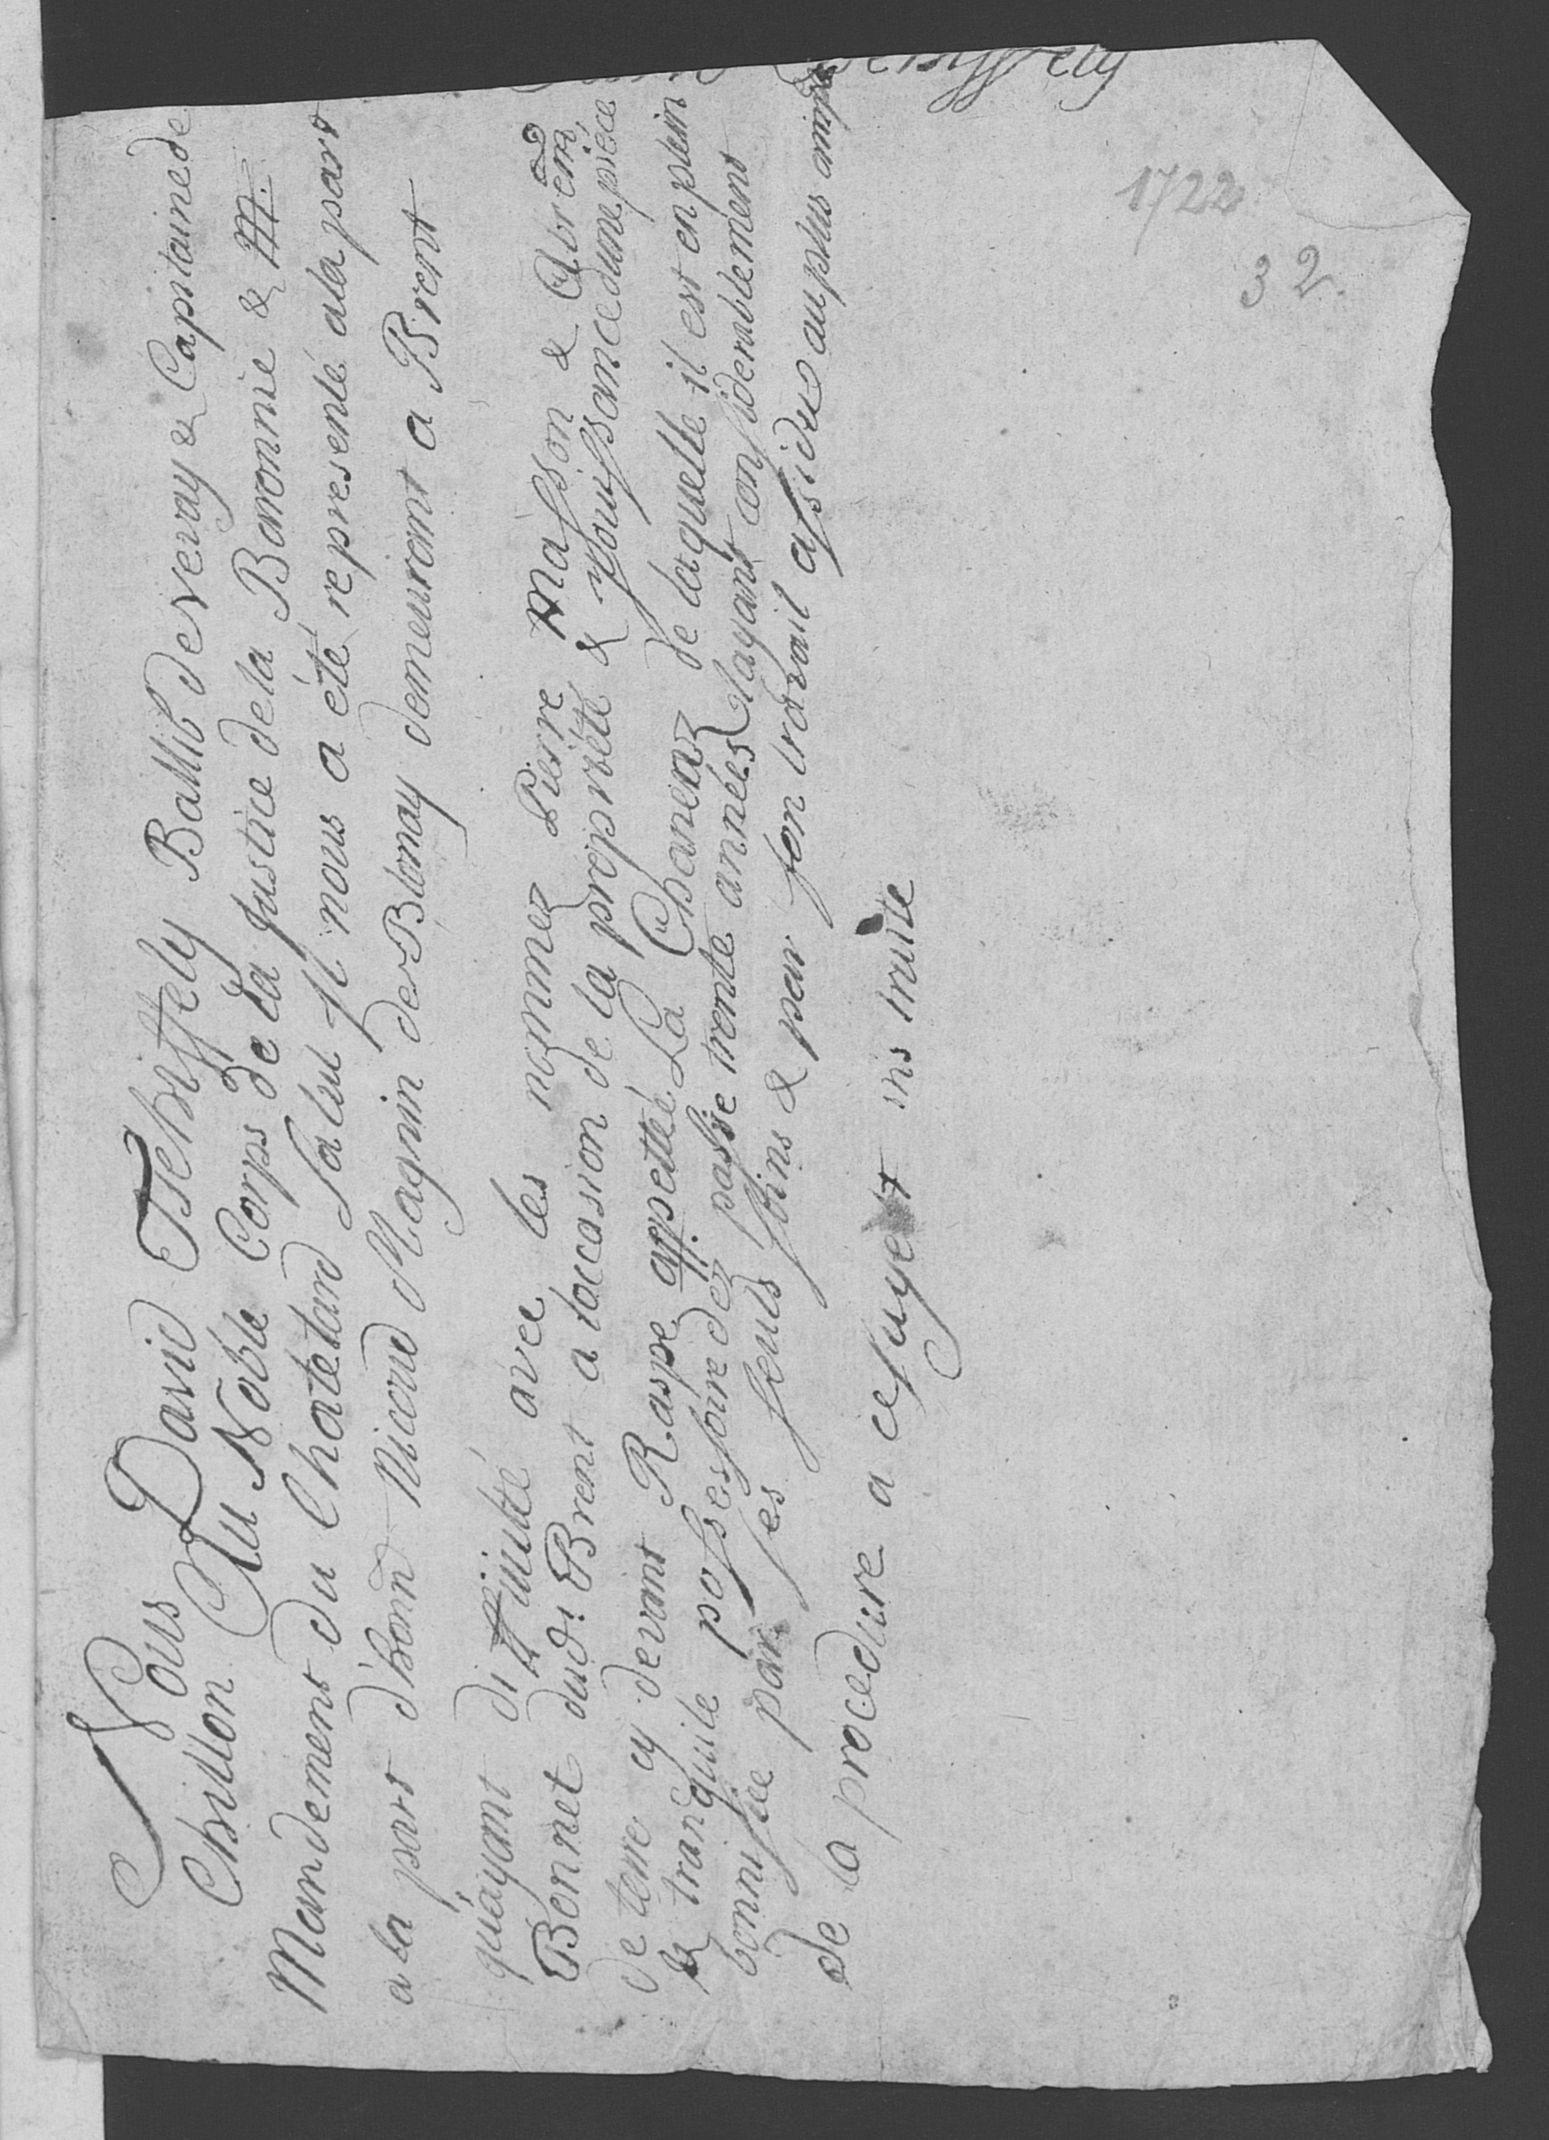 Nous David Tschiffely Baillif de vevay & Capitaine de
Chillon Au Noble Corps de La Justice de la Baronnie &
Mandement du Chatelard Salut Il nous a été representé a la part
a la part d'honn Nicond Magnin de Blonay demeurant a Brent
qu'ayant difficulté avec les nommez Pierre Masson & Abrêm
Bonnet dud: Brent a l'occasion de la proprieté & jouissance dune piéce
de terre cy devant Raspe appellée La Chanenz de laquelle il est en plein
& tranquile possessoire dez passe trente années layant considerablement
bonnifiée par ses seuls soins & par son travail assidu au plus ample
de la procedure a ce sujet instruite
Tschiffely
1722
32